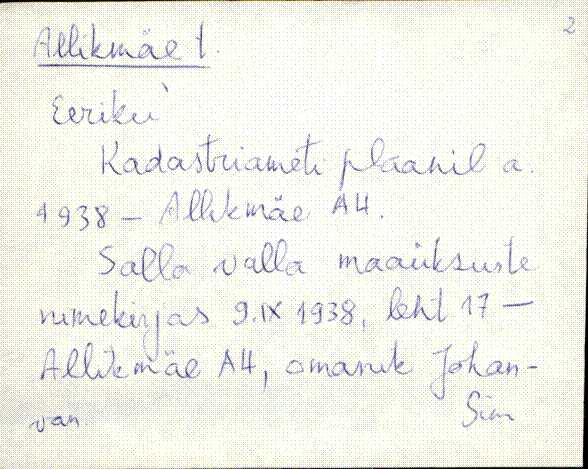 2
Allikmäe t.
Eeriku
Kadastriameti plaanil a.
1938 – Allikmäe A4.
Salla valla maaüksuste
nimekirjas 9.IX 1938, leht 17 –
Allikmäe A4, omanik Johan-
Sim
van